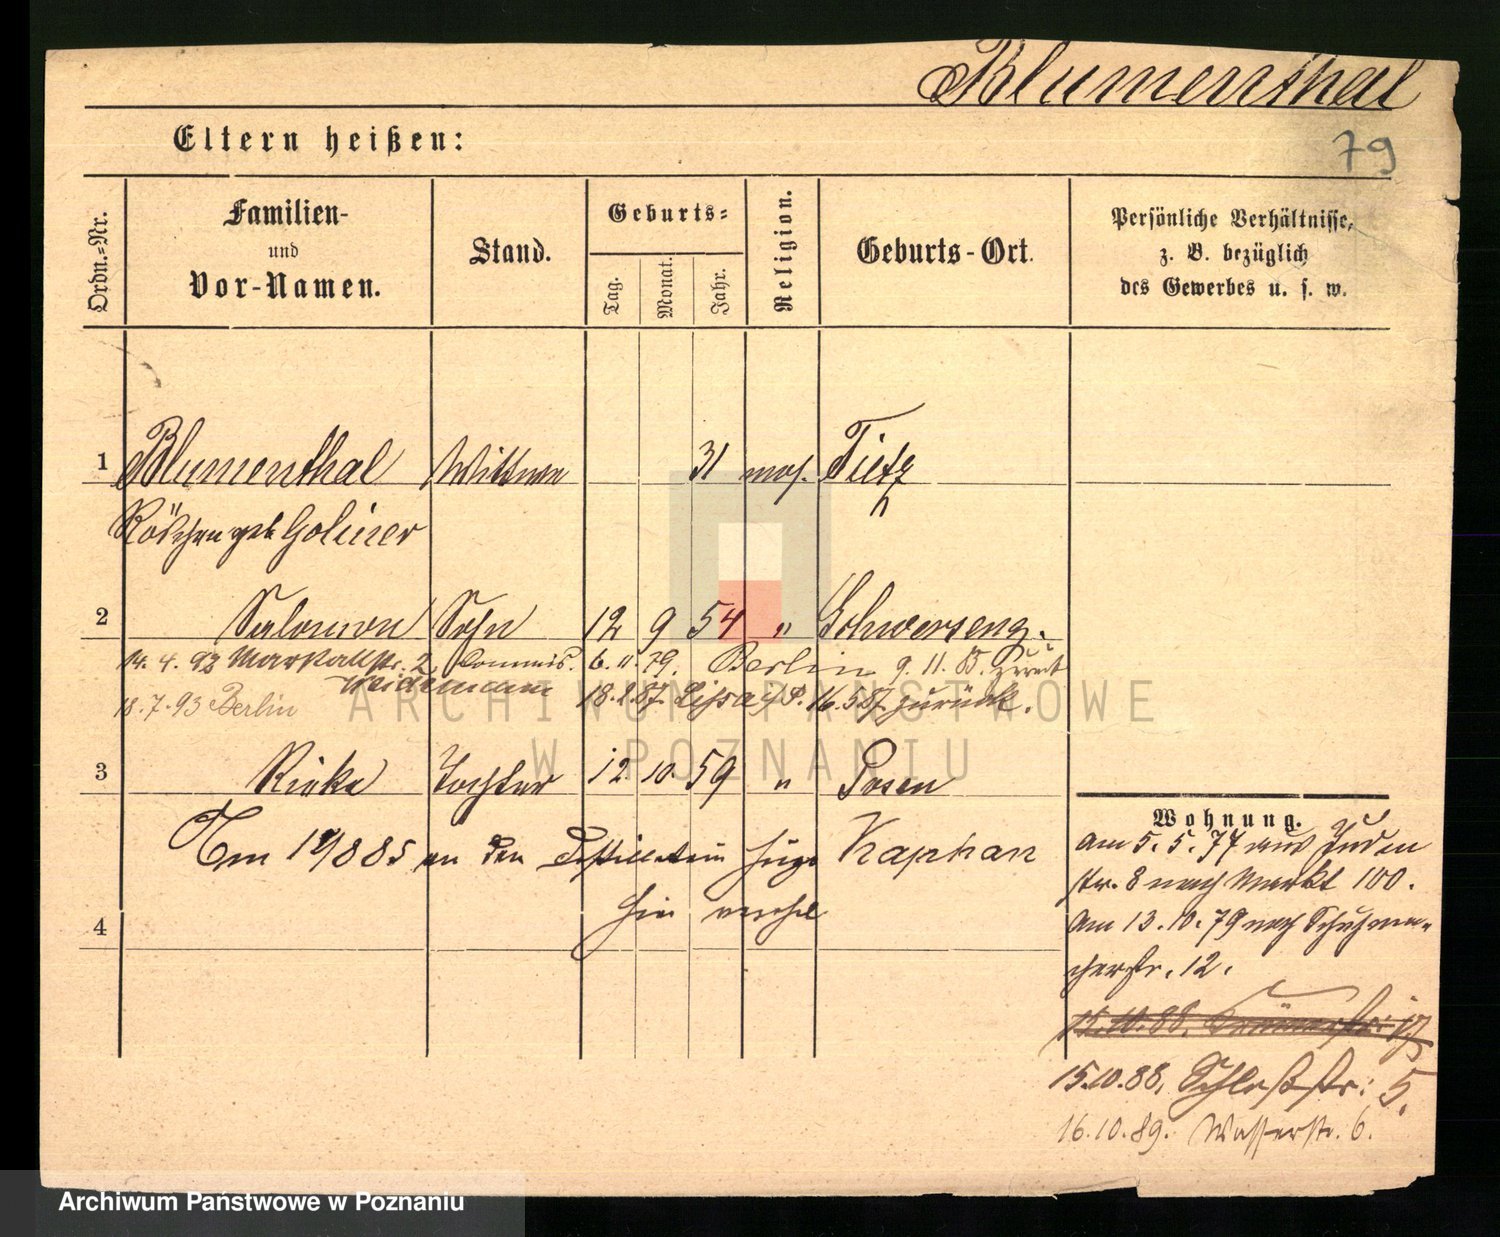 Blumenthal
79
Eltern heißen:
Ordn.=Nr.
Familien-
und
Vor-Namen.
Stand.
Geburts=
Tag.
Monat.
Jahr.
Religion.
Geburts-Ort.
Persönliche Verhältnisse,
z. B. bezüglich
des Gewerbes u. s. w.
1 Blumenthal Wittwe 31 mos. Tietz
Röschen geb Goliner
2 Salomon Sohn 12 9 54 " Schwersenz.
14. 4. 93 Markallstr. 2, Commis. 6. 11. 79. Berlin 9. 11. 85. zurück
Weidemann
18. 7. 93 Berlin 18. 2. 87. Lissa i/P. 16. 5 87. zurück.
3 Rieke Tochter 12 10. 59 " Posen
Am 1885 an den Destillateur Hugo Kaphan
hier verehel
4
Wohnung.
am 5. 5. 77 aus Juden
str. 8 nach Markt 100.
Am 13. 10. 79 nach Schuhma-
cherstr. 12.
15. 10. 88.
15.10.88, Schloßstr: 5.
16.10.89. Wasserstr. 6.
ARCHIWUM PAŃSTWOWE
W POZNANIU
Archiwum Państwowe w Poznaniu